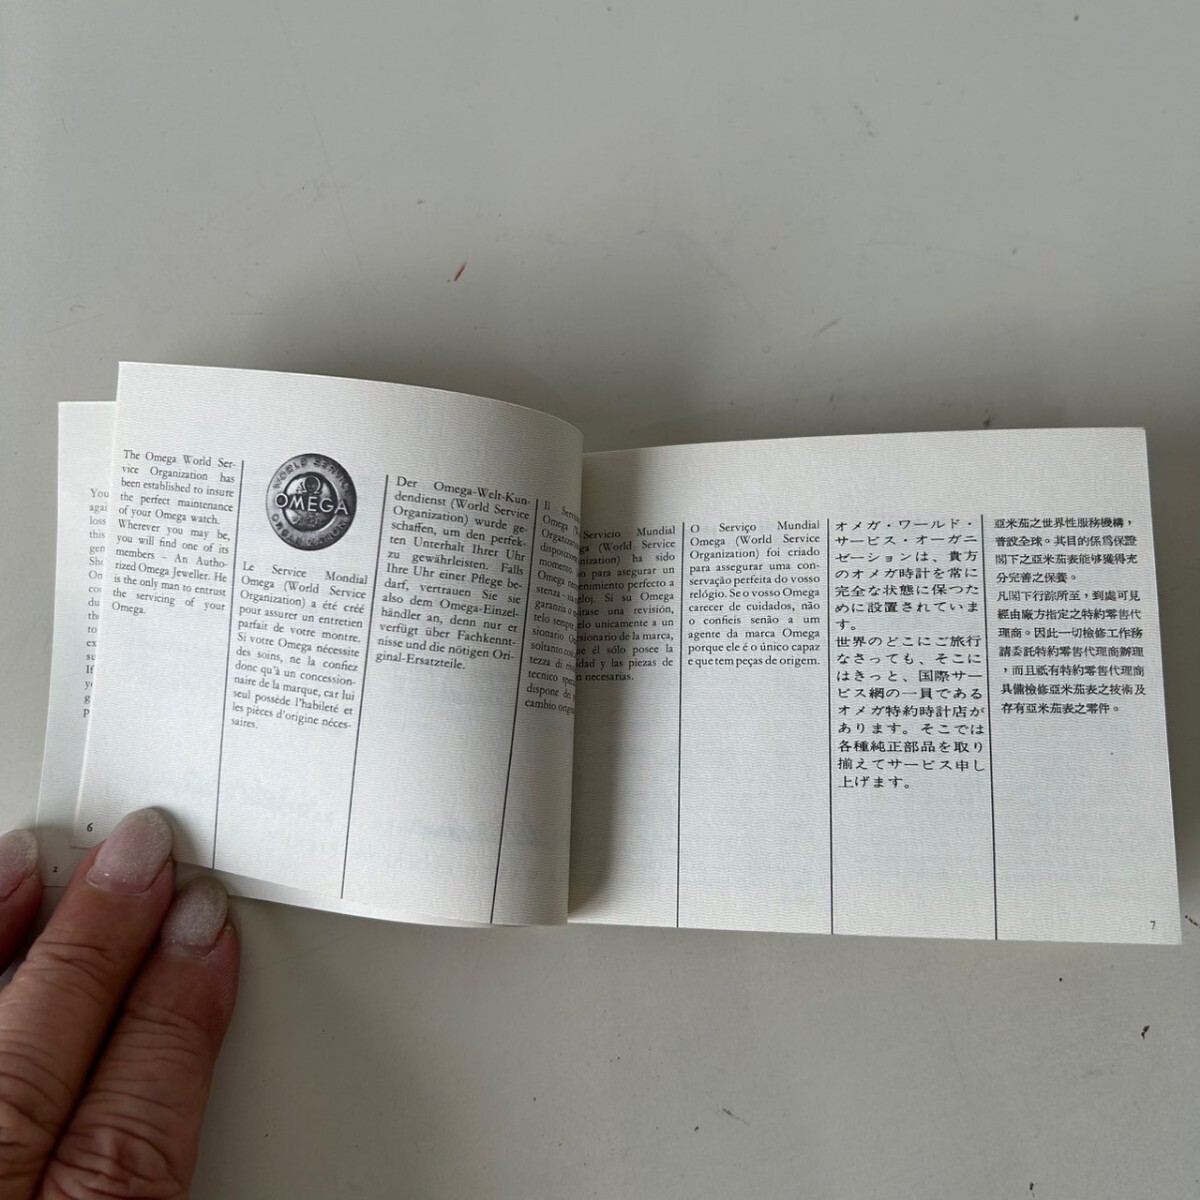 The Omega World Ser-
vice Organization has
been established to insure
the perfect maintenance
of your Omega watch.
Wherever you may be,
you will find one of its
members – An Autho-
rized Omega Jeweller. He
is the only man to entrust
the servicing of your
Omega.
WORLD SERVICE
OMEGA
ORGANIZATION
Le Service Mondial
Omega (World Service
Organization) a été créé
pour assurer un entretien
parfait de votre montre.
Si votre Omega nécessite
des soins, ne la confiez
donc qu'à un concession-
naire de la marque, car lui
seul possède l'habileté et
les pièces d'origine néces-
saires.
Der Omega-Welt-Kun-
dendienst (World Service
Organization) wurde ge-
schaffen, um den perfek-
ten Unterhalt Ihrer Uhr
zu gewährleisten. Falls
Ihre Uhr einer Pflege be-
darf, vertrauen Sie sie
also dem Omega-Einzel-
händler an, denn nur er
verfügt über Fachkennt-
nisse und die nötigen Ori-
ginal-Ersatzteile.
Il
Omega
disposizione
momento.
Omega
garanzia o
telo
soltanto
tecnico
dispone dei
cambio
Servicio Mondial
(World Service
ha sido
para asegurar un
perfecto a
Si su Omega
una revisión,
unicamente a un
de la marca,
él sólo posee la
y las piezas de
necesarias.
O Serviço Mundial
Omega (World Service
Organization) foi criado
para assegurar uma con-
servação perfeita do vosso
relógio. Se o vosso Omega
carecer de cuidados, não
o confieis senão a um
agente da marca Omega
porque ele é o único capaz
e que tem peças de origem.
オメガ・ワールド・
サービス・オーガニ
ゼーションは、貴方
のオメガ時計を常に
完全な状態に保つた
めに設置されていま
す。
世界のどこにご旅行
なさっても、そこに
はきっと、国際サー
ビス網の一員である
オメガ特約時計店が
あります。そこでは
各種純正部品を取り
揃えてサービス申し
上げます。
亞米茄之世界性服務機構，
普設全球。其目的係爲保證
閣下之亞米茄表能够獲得充
分完善之保養。
凡閣下行踪所至，到處可見
經由廠方指定之特約零售代
理商。因此一切檢修工作務
請委託特約零售代理商辦理
，而且祇有特約零售代理商
具備檢修亞米茄表之技術及
存有亞米茄表之零件。
You
6
2
7